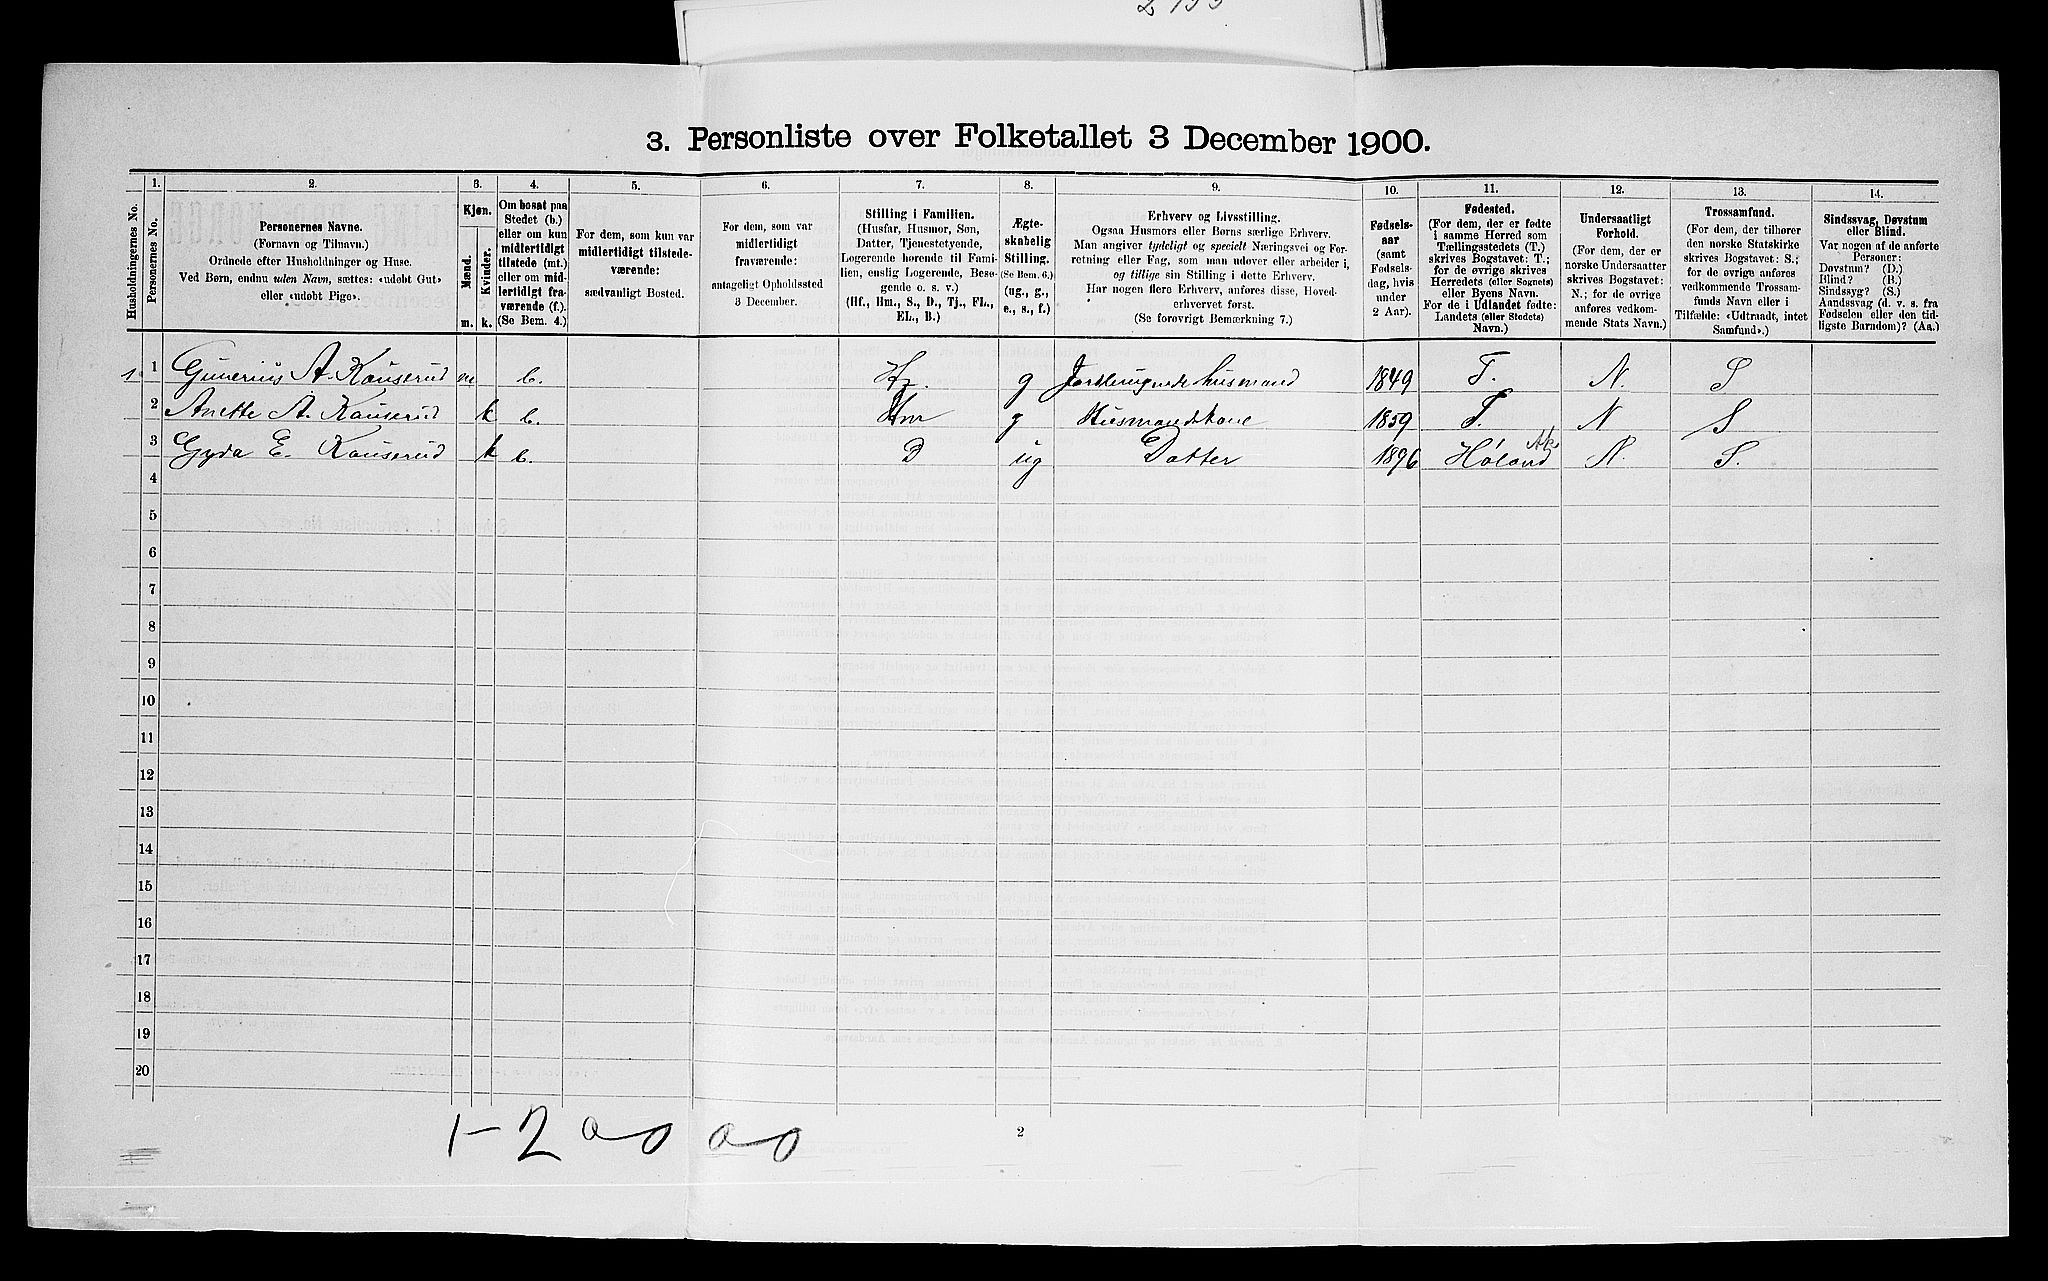 3. Personliste over Folketallet 3 December 1900.
Husholdningernes No.
1.
Personernes No.
2.
Personernes Navne.
(Fornavn og Tilnavn.)
Ordnede efter Husholdninger og Huse.
Ved Børn, endnu uden Navn, sættes: «udøbt Gut»
eller «udøbt Pige».
3.
Kjøn.
Mænd.
Kvinder.
m. k.
4.
Om bosat paa
Stedet (b.)
eller om kun
midlertidigt
tilstede (mt.)
eller om mid-
lertidigt fra-
værende (f.).
(Se Bem. 4.)
5.
For dem, som kun var
midlertidigt tilstede-
værende:
sædvanligt Bosted.
6.
For dem, som var
midlertidigt
fraværende:
antageligt Opholdssted
3 December.
7.
Stilling i Familien.
(Husfar, Husmor, Søn,
Datter, Tjenestetyende,
Logerende hørende til Fami-
lien, enslig Logerende, Besø-
gende o. s. v.)
(Hf., Hm., S., D., Tj., FL.,
EL., B.)
8.
Ægte-
skabelig
Stilling.
(Se Bem. 6.)
(ug., g.,
e., s., f.)
9.
Erhverv og Livsstilling.
Ogsaa Husmors eller Børns særlige Erhverv.
Man angiver tydeligt og specielt Næringsvei og For-
retning eller Fag, som man udøver eller arbeider i,
og tillige sin Stilling i dette Erhverv.
Har nogen flere Erhverv, anføres disse, Hoved-
erhvervet først.
(Se forøvrigt Bemærkning 7.)
10.
Fødsels-
aar
(samt
Fødsels-
dag, hvis
under
2 Aar).
11.
Fødested.
(For dem, der er fødte
i samme Herred som
Tællingsstedets (T.)
skrives Bogstavet: T.;
for de øvrige skrives
Herredets (eller Sognets)
eller Byens Navn.
For de i Udlandet fødte:
Landets (eller Stedets)
Navn.)
12.
Undersaatligt
Forhold.
(For dem, der er
norske Undersaatter
skrives Bogstavet:
N.; for de øvrige
anføres vedkom-
mende Stats Navn.)
13.
Trossamfund.
(For dem, der tilhører
den norske Statskirke
skrives Bogstavet: S.;
for de øvrige anføres
vedkommende Trossam-
funds Navn eller i
Tilfælde: «Udtraadt, intet
Samfund».)
14.
Sindssvag, Døvstum
eller Blind.
Var nogen af de anførte
Personer:
Døvstum? (D.)
Blind? (B.)
Sindssyg? (S.)
Aandssvag (d. v. s. fra
Fødselen eller den tid-
ligste Barndom)? (Aa.)
1 1 Gunerius A. Kauserud m b. g husmand 1849 T. N. S
2 Anette A. Kauserud k b. Hm g Husmandskone 1859 T. N S
3 Gyda E. Kauserud k b. D ug Datter 1896 Høland Ak. N. S.
4
5
6
7
8
9
10
11
12
13
14
15
16
17
18
19
20
1-2 0 0 0 0
2